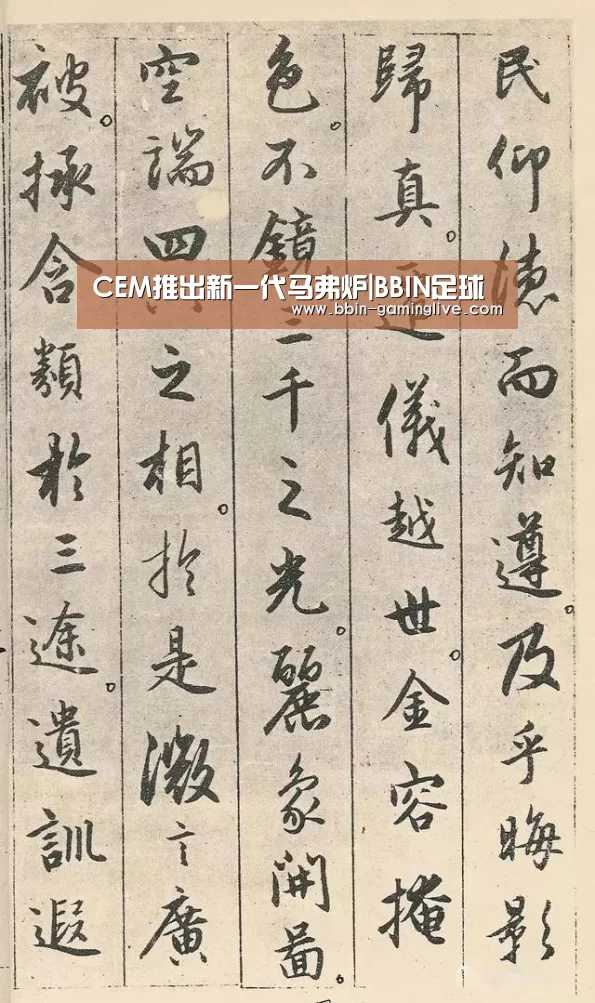 民仰德而知遵。及乎晦影
歸真。儀越世。金容掩
色。不鏡三千之光。麗象開啚。
空端四之相。於是微言廣
被。拯含類於三途。遺訓遐
CEM推出新一代马弗炉|BBIN足球
www.bbin-gaminglive.com